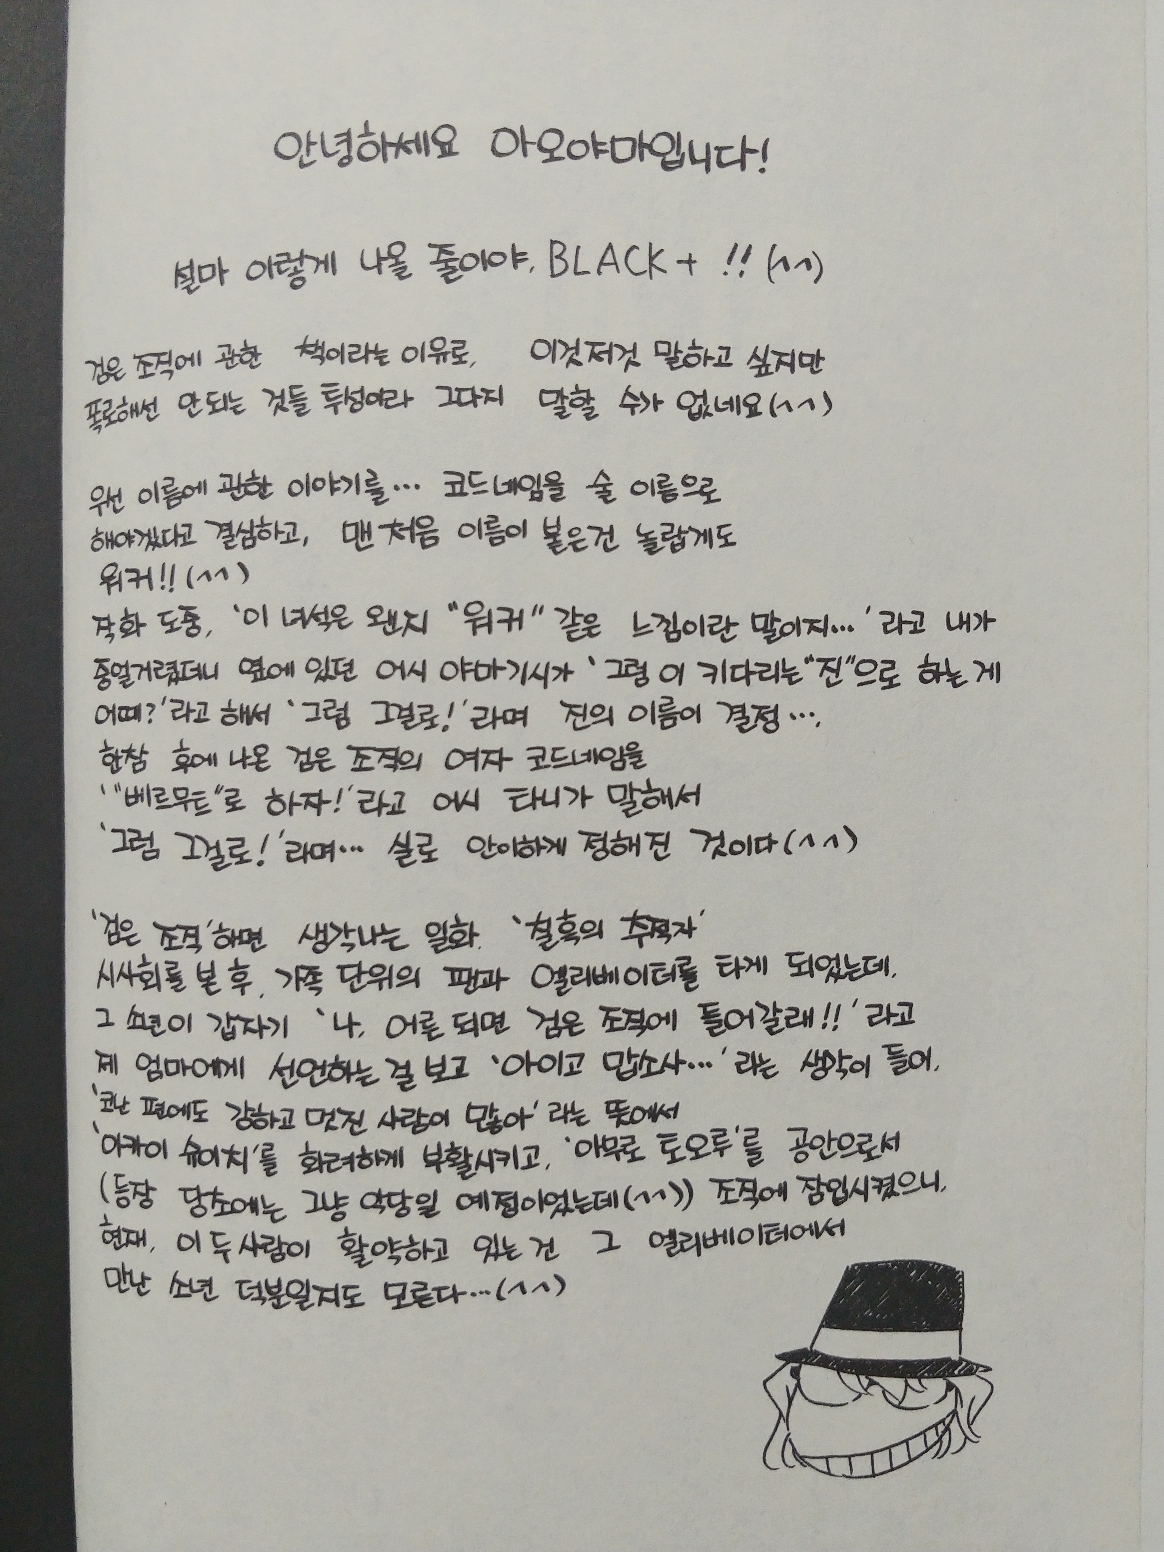 안녕하세요 아오야마입니다!
설마 이렇게 나올 줄이야, BLACK+ !! (^^)
검은 조직에 관한 책이라는 이유로, 이것저것 말하고 싶지만
폭로해선 안되는 것들 투성이라 그다지 말할 수가 없네요(^^)
우선 이름에 관한 이야기를… 코드네임을 술 이름으로
해야겠다고 결심하고, 맨 처음 이름이 붙은건 놀랍게도
워커!!(^^)
작화 도중, '이 녀석은 왠지 "워커" 같은 느낌이란 말이지…'라고 내가
중얼거렸더니 옆에 있던 어시 야마기시가 '그럼 이 키다리는 "진"으로 하는 게
어때?'라고 해서 '그럼 그걸로!'라며 진의 이름이 결정….
한참 후에 나온 검은 조직의 여자 코드네임을
'"베르무트"로 하자!'라고 어시 타니가 말해서
'그럼 그걸로!'라며… 실로 안이하게 정해진 것이다(^^)
'검은 조직'하면 생각나는 일화. '칠흑의 추적자'
시사회를 본 후, 가족 단위의 팬과 엘리베이터를 타게 되었는데,
그 소년이 갑자기 '나, 어른 되면 검은 조직에 들어갈래!!'라고
제 엄마에게 선언하는 걸 보고 '아이고 맙소사…'라는 생각이 들어,
'코난 편에도 강하고 멋진 사람이 많아'라는 뜻에서
'아카이 슈이치'를 화려하게 부활시키고, '아무로 토오루'를 공안으로서
(등장 당초에는 그냥 악당일 예정이었는데(^^)) 조직에 잠입시켰으니,
현재, 이 두 사람이 활약하고 있는 건 그 엘리베이터에서
만난 소년 덕분일지도 모른다…(^^)